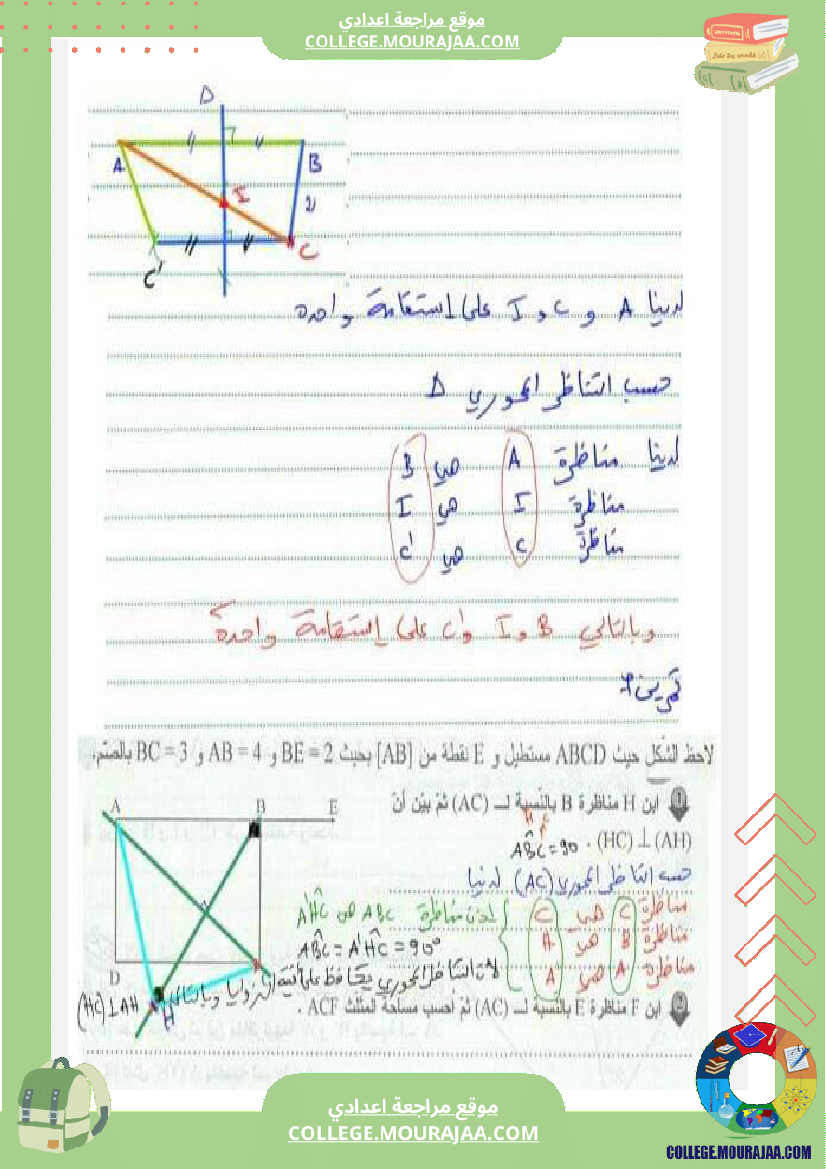 موقع مراجعة اعدادي
COLLEGE.MOURAJAA.COM
Δ
A B
I
C
C'
لدينا A و C و I على إستقامة واحدة
حسب التناظر المحوري Δ
لدينا مناظرة A هي B
مناظرة I هي I
مناظرة C هي C'
وبالتالي B و I و C' على إستقامة واحدة
تمرين
لاحظ الشكل حيث ABCD مستطيل و E نقطة من [AB] بحيث BE = 2 و AB = 4 و BC = 3 بالصّم.
1 ابن H مناظرة B بالنّسبة لـ (AC) ثمّ بيّن أنّ
(HC) ⊥ (AH) .
ABC = 90
حسب التناظر المحوري (AC) لدينا
مناظرة C هي C
مناظرة B هي H
مناظرة A هي A
إذن مناظرة ABC هي AHC
ABC = AHC = 90°
لأن التناظر المحوري يحافظ على أقيسة الزوايا وبالتالي (HC) ⊥ AH
A B E
D
H
2 ابن F مناظرة E بالنّسبة لـ (AC) ثمّ احسب مساحة المثلث ACF .
موقع مراجعة اعدادي
COLLEGE.MOURAJAA.COM
COLLEGE.MOURAJAA.COM